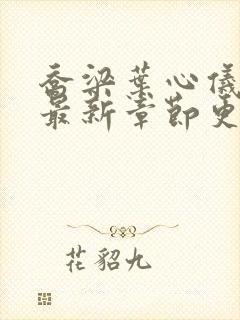 乔梁叶心仪
最新章节更
花貂九